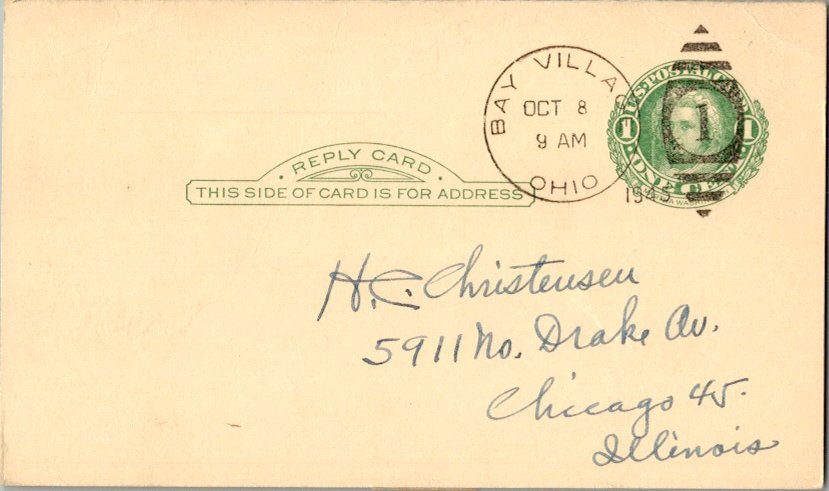 BAY VILLAG
OCT 8
9 AM
OHIO
1945
U.S. POSTAL CARD
1 1 1
ONE CENT
REPLY CARD
THIS SIDE OF CARD IS FOR ADDRESS
H.C. Christensen
5911 No. Drake Av.
Chicago 45.
Illinois